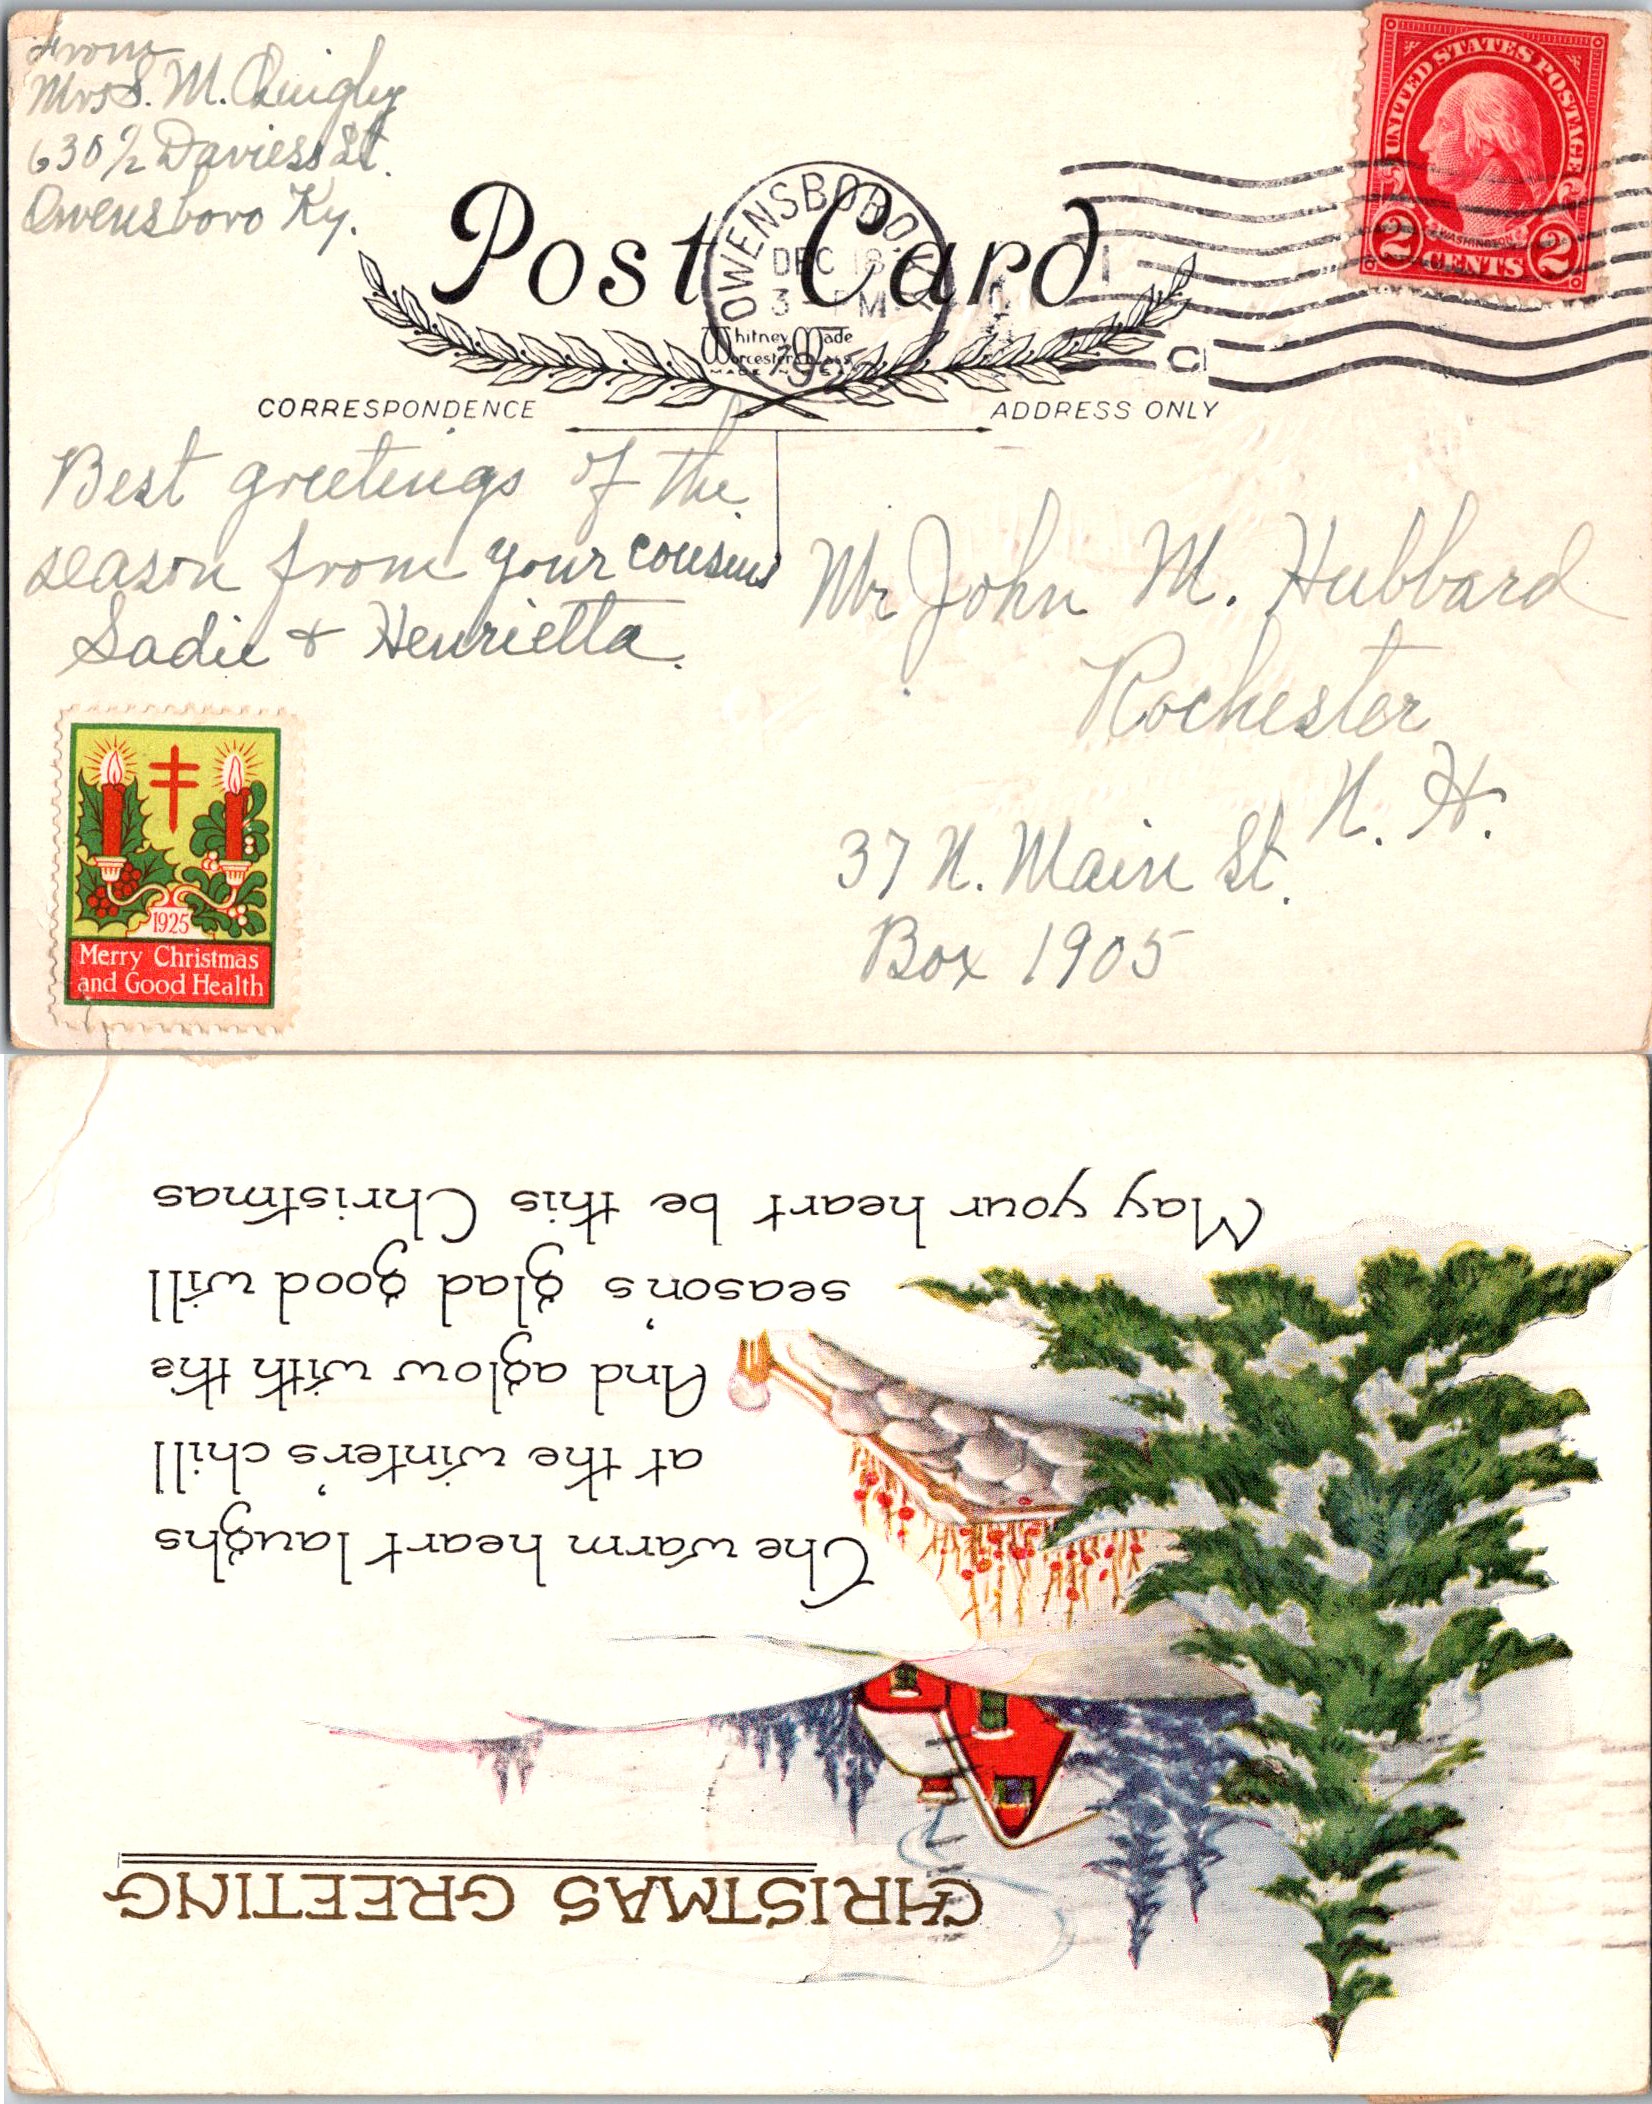 From
Mrs S. M. Quigley
630 1/2 Daviess St.
Owensboro Ky.
Post Card
OWENSBORO, KY.
DEC 18
3 - PM
Whitney Made
Worcester Mass
MADE IN U.S.A.
UNITED STATES POSTAGE
WASHINGTON
2 CENTS 2
CORRESPONDENCE
ADDRESS ONLY
Best greetings of the
season from your cousins
Sadie & Henrietta.
Mr John M. Hubbard
Rochester
N. H.
37 N. Main St.
Box 1905
1925
Merry Christmas
and Good Health
CHRISTMAS GREETING
The warm heart laughs
at the winter's chill
And aglow with the
season's glad good will
May your heart be this Christmas